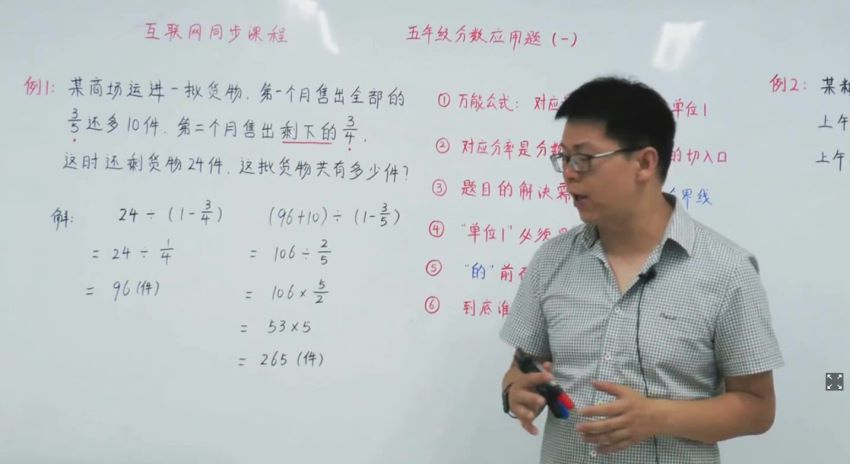 互联网同步课程
五年级分数应用题(一)
例1: 某商场运进一批货物,第一个月售出全部的
3/5还多10件,第二个月售出剩下的3/4,
这时还剩货物24件,这批货物共有多少件?
解: 24÷(1-3/4)
=24÷1/4
=96(件)
(96+10)÷(1-3/5)
=106÷2/5
=106×5/2
=53×5
=265(件)
① 万能公式: 对应 单位1
② 对应分率是分数 的切入口
③ 题目的解决需 界线
④ "单位1"必须
⑤ "的"前
⑥ 到底谁
例2: 某
上午
上午